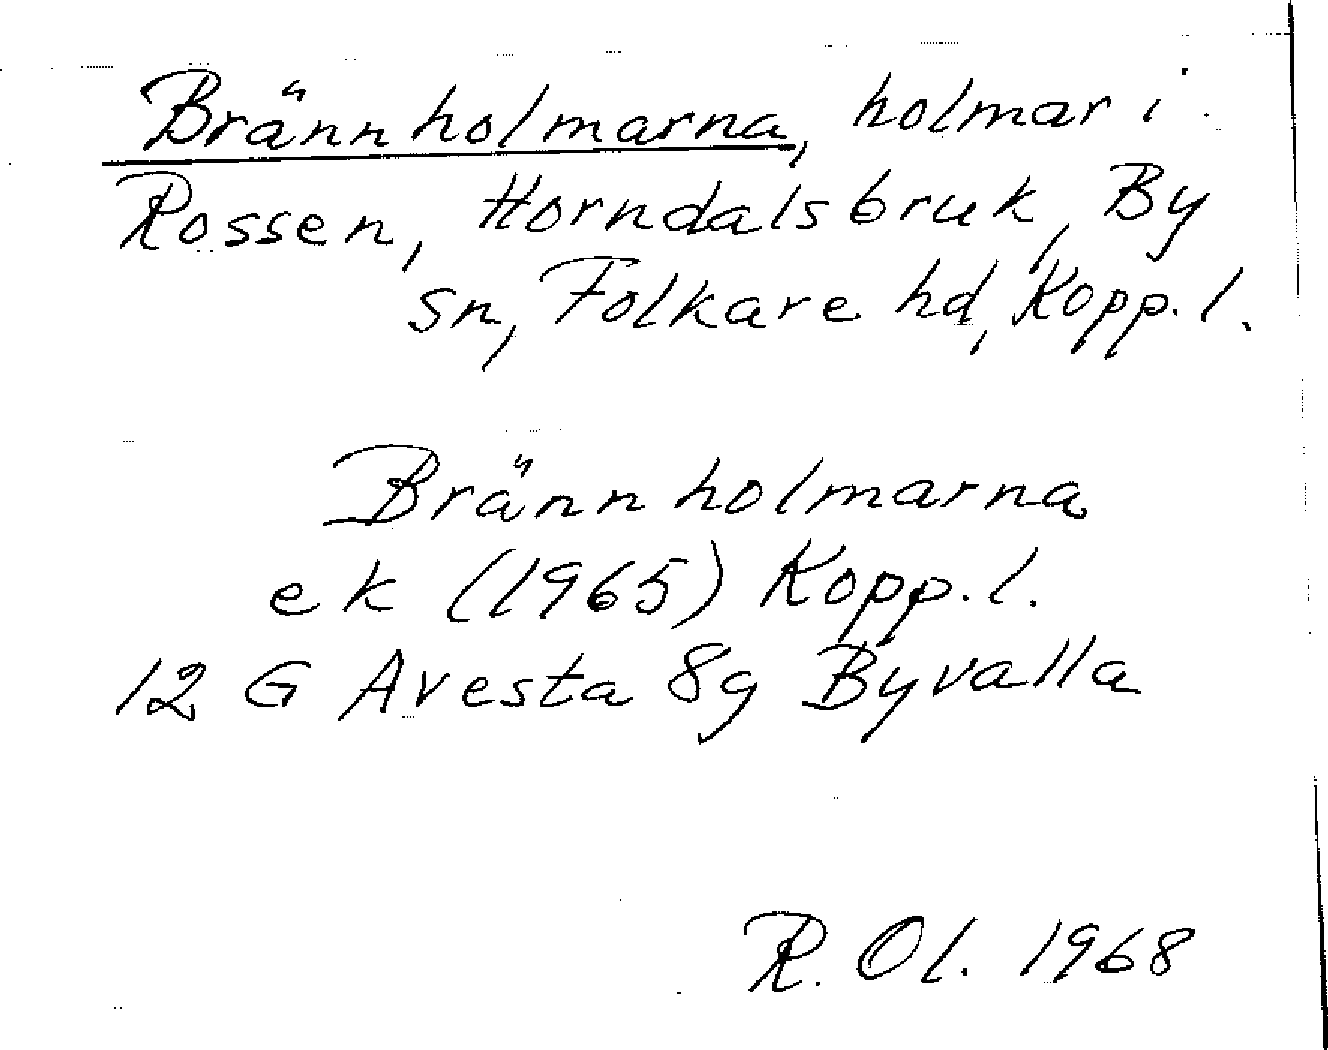 Brännholmarna, holmar i
Rossen, Horndalsbruk, By
sn, Folkare hd, Kopp. l.
Brännholmarna
ek (1965) Kopp. l.
12 G Avesta 8g Byvalla
R. Ol. 1968